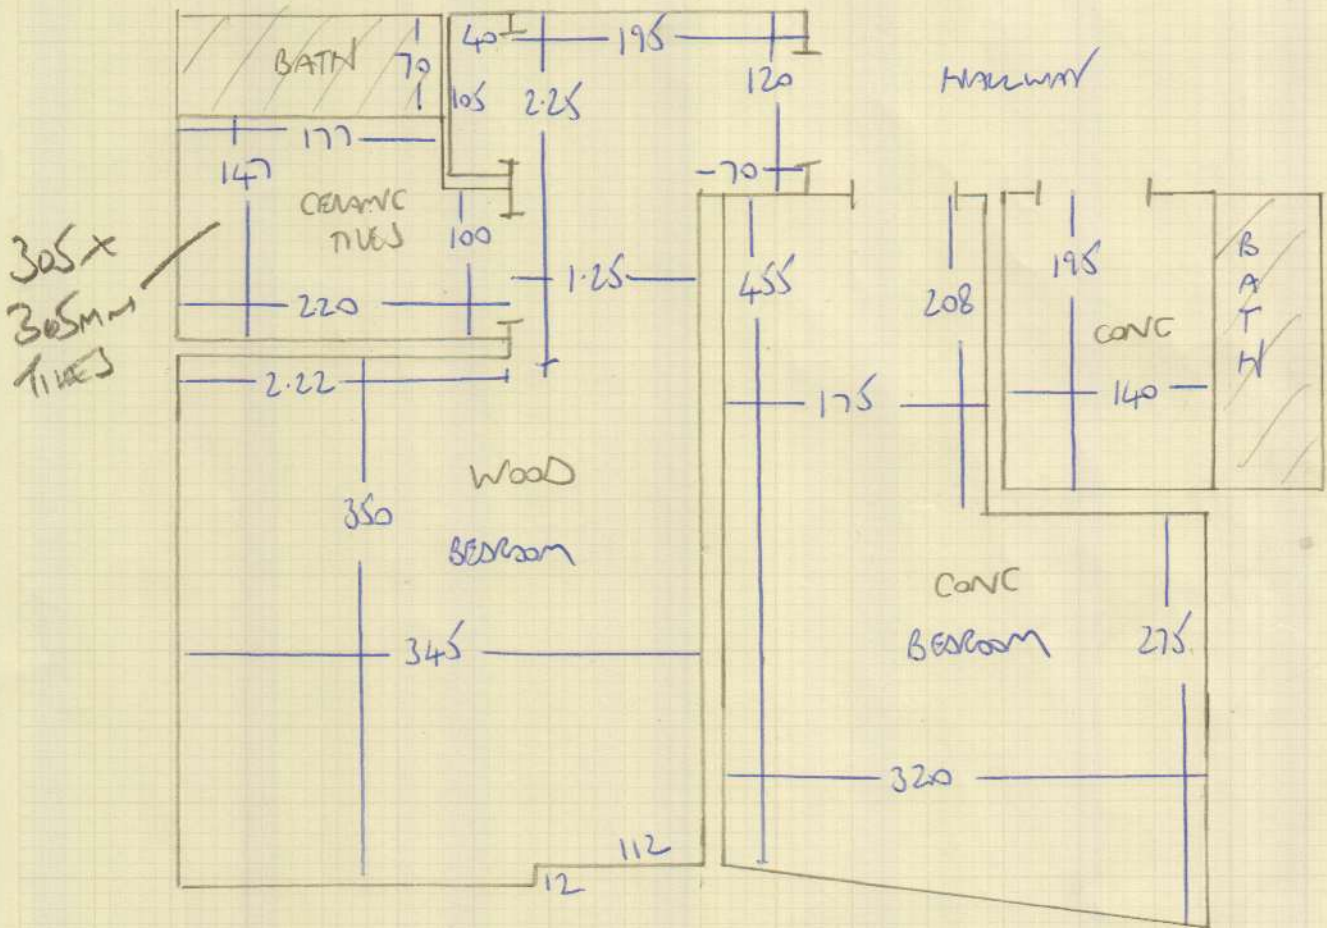 BATH
70
40
195
120
HALLWAY
105
2.25
177
147
CERAMIC
TILES
100
-70
305 x
305MM
TILES
220
1.25
455
208
195
CONC
BATH
2.22
175
140
350
WOOD
BEDROOM
CONC
BEDROOM
275
345
320
112
12